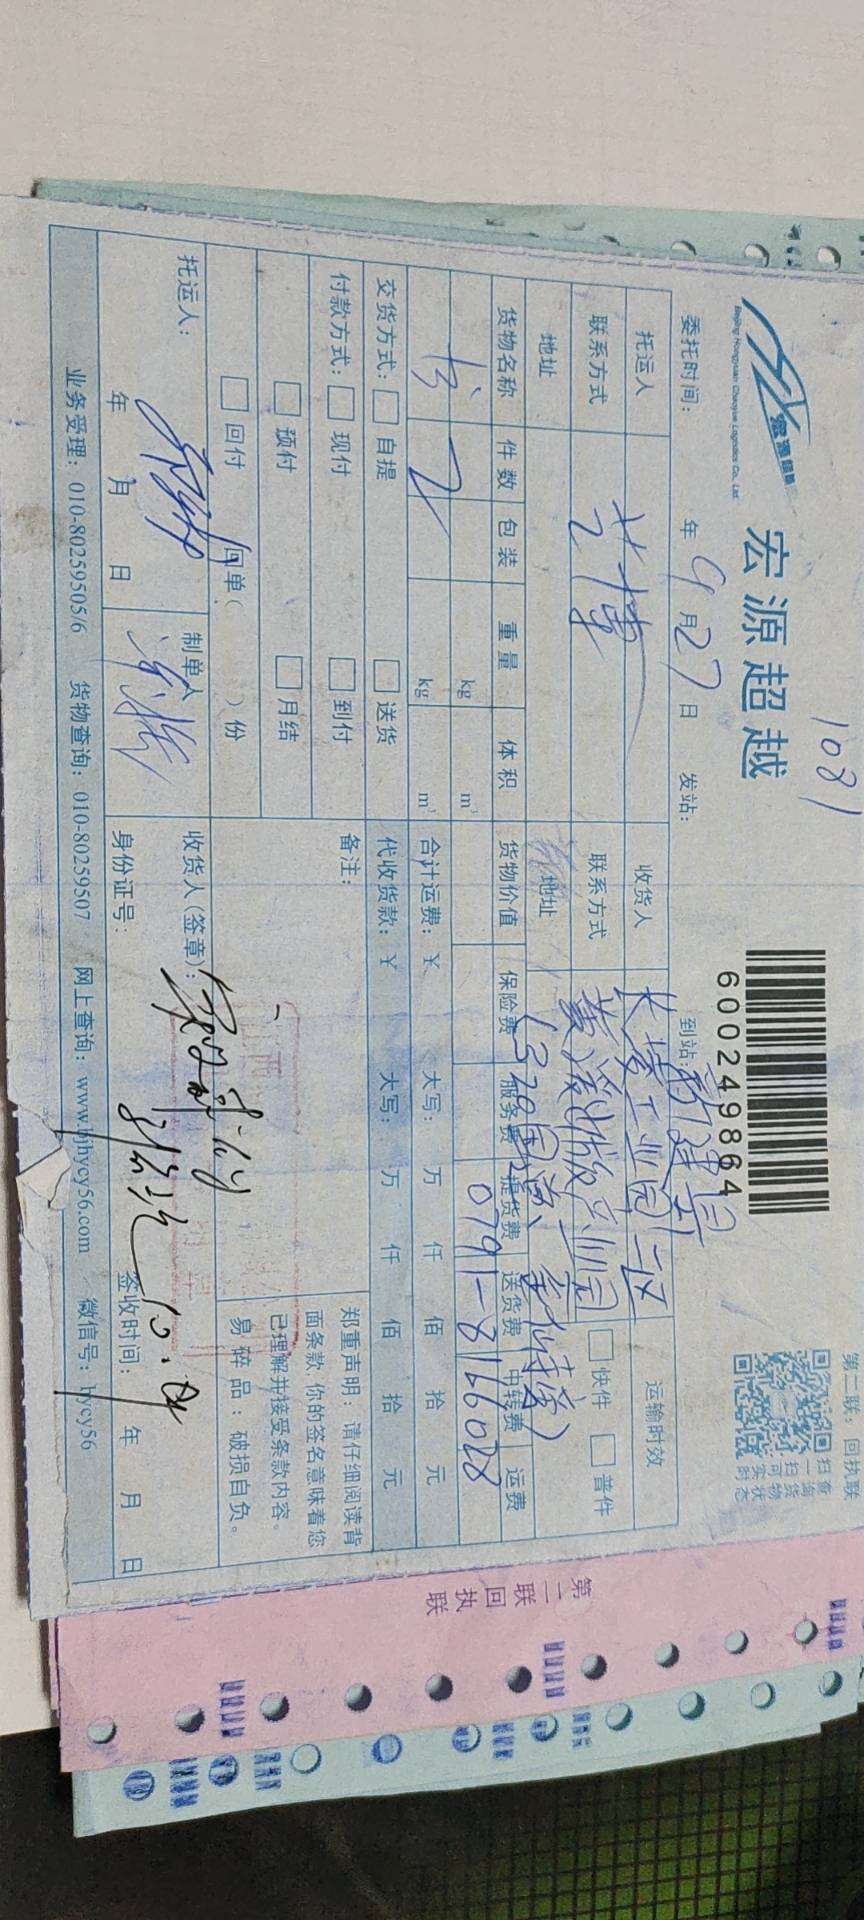 1081
宏源超越
宏源超越
Beijing Hongyuan Chaoyue Logistics Co., Ltd.
600249864
第二联：回执联
扫一扫可实时
查询货物状态
委托时间： 年 9 月 27 日 发站： 到站： 新建县
托运人 收货人 长堎工业园二区 运输时效
联系方式 兰博 联系方式 黄溪出版产业园 快件 普件
地址 地址 (320国道
货物名称 件数 包装 重量 体积 货物价值 保险费 服务费 提货费 送货费 中转费 运费
kg m³ 0791-8166028
书 2 kg m³ 合计运费：￥ 大写： 万 仟 佰 拾 元
交货方式： 自提 送货 代收货款：￥ 大写： 万 仟 佰 拾 元
付款方式： 现付 到付 备注：
预付 月结
回付 回单（ ）份
郑重声明：请仔细阅读背
面条款，你的签名意味着您
已理解并接受条款内容。
易碎品：破损自负。
托运人： 制单人 收货人（签章）：
年 月 日 身份证号： 10.9 签收时间： 年 月 日
业务受理：010-80259505/6 货物查询：010-80259507 网上查询：www.bjhycy56.com 微信号：hycy56
第二联回执联